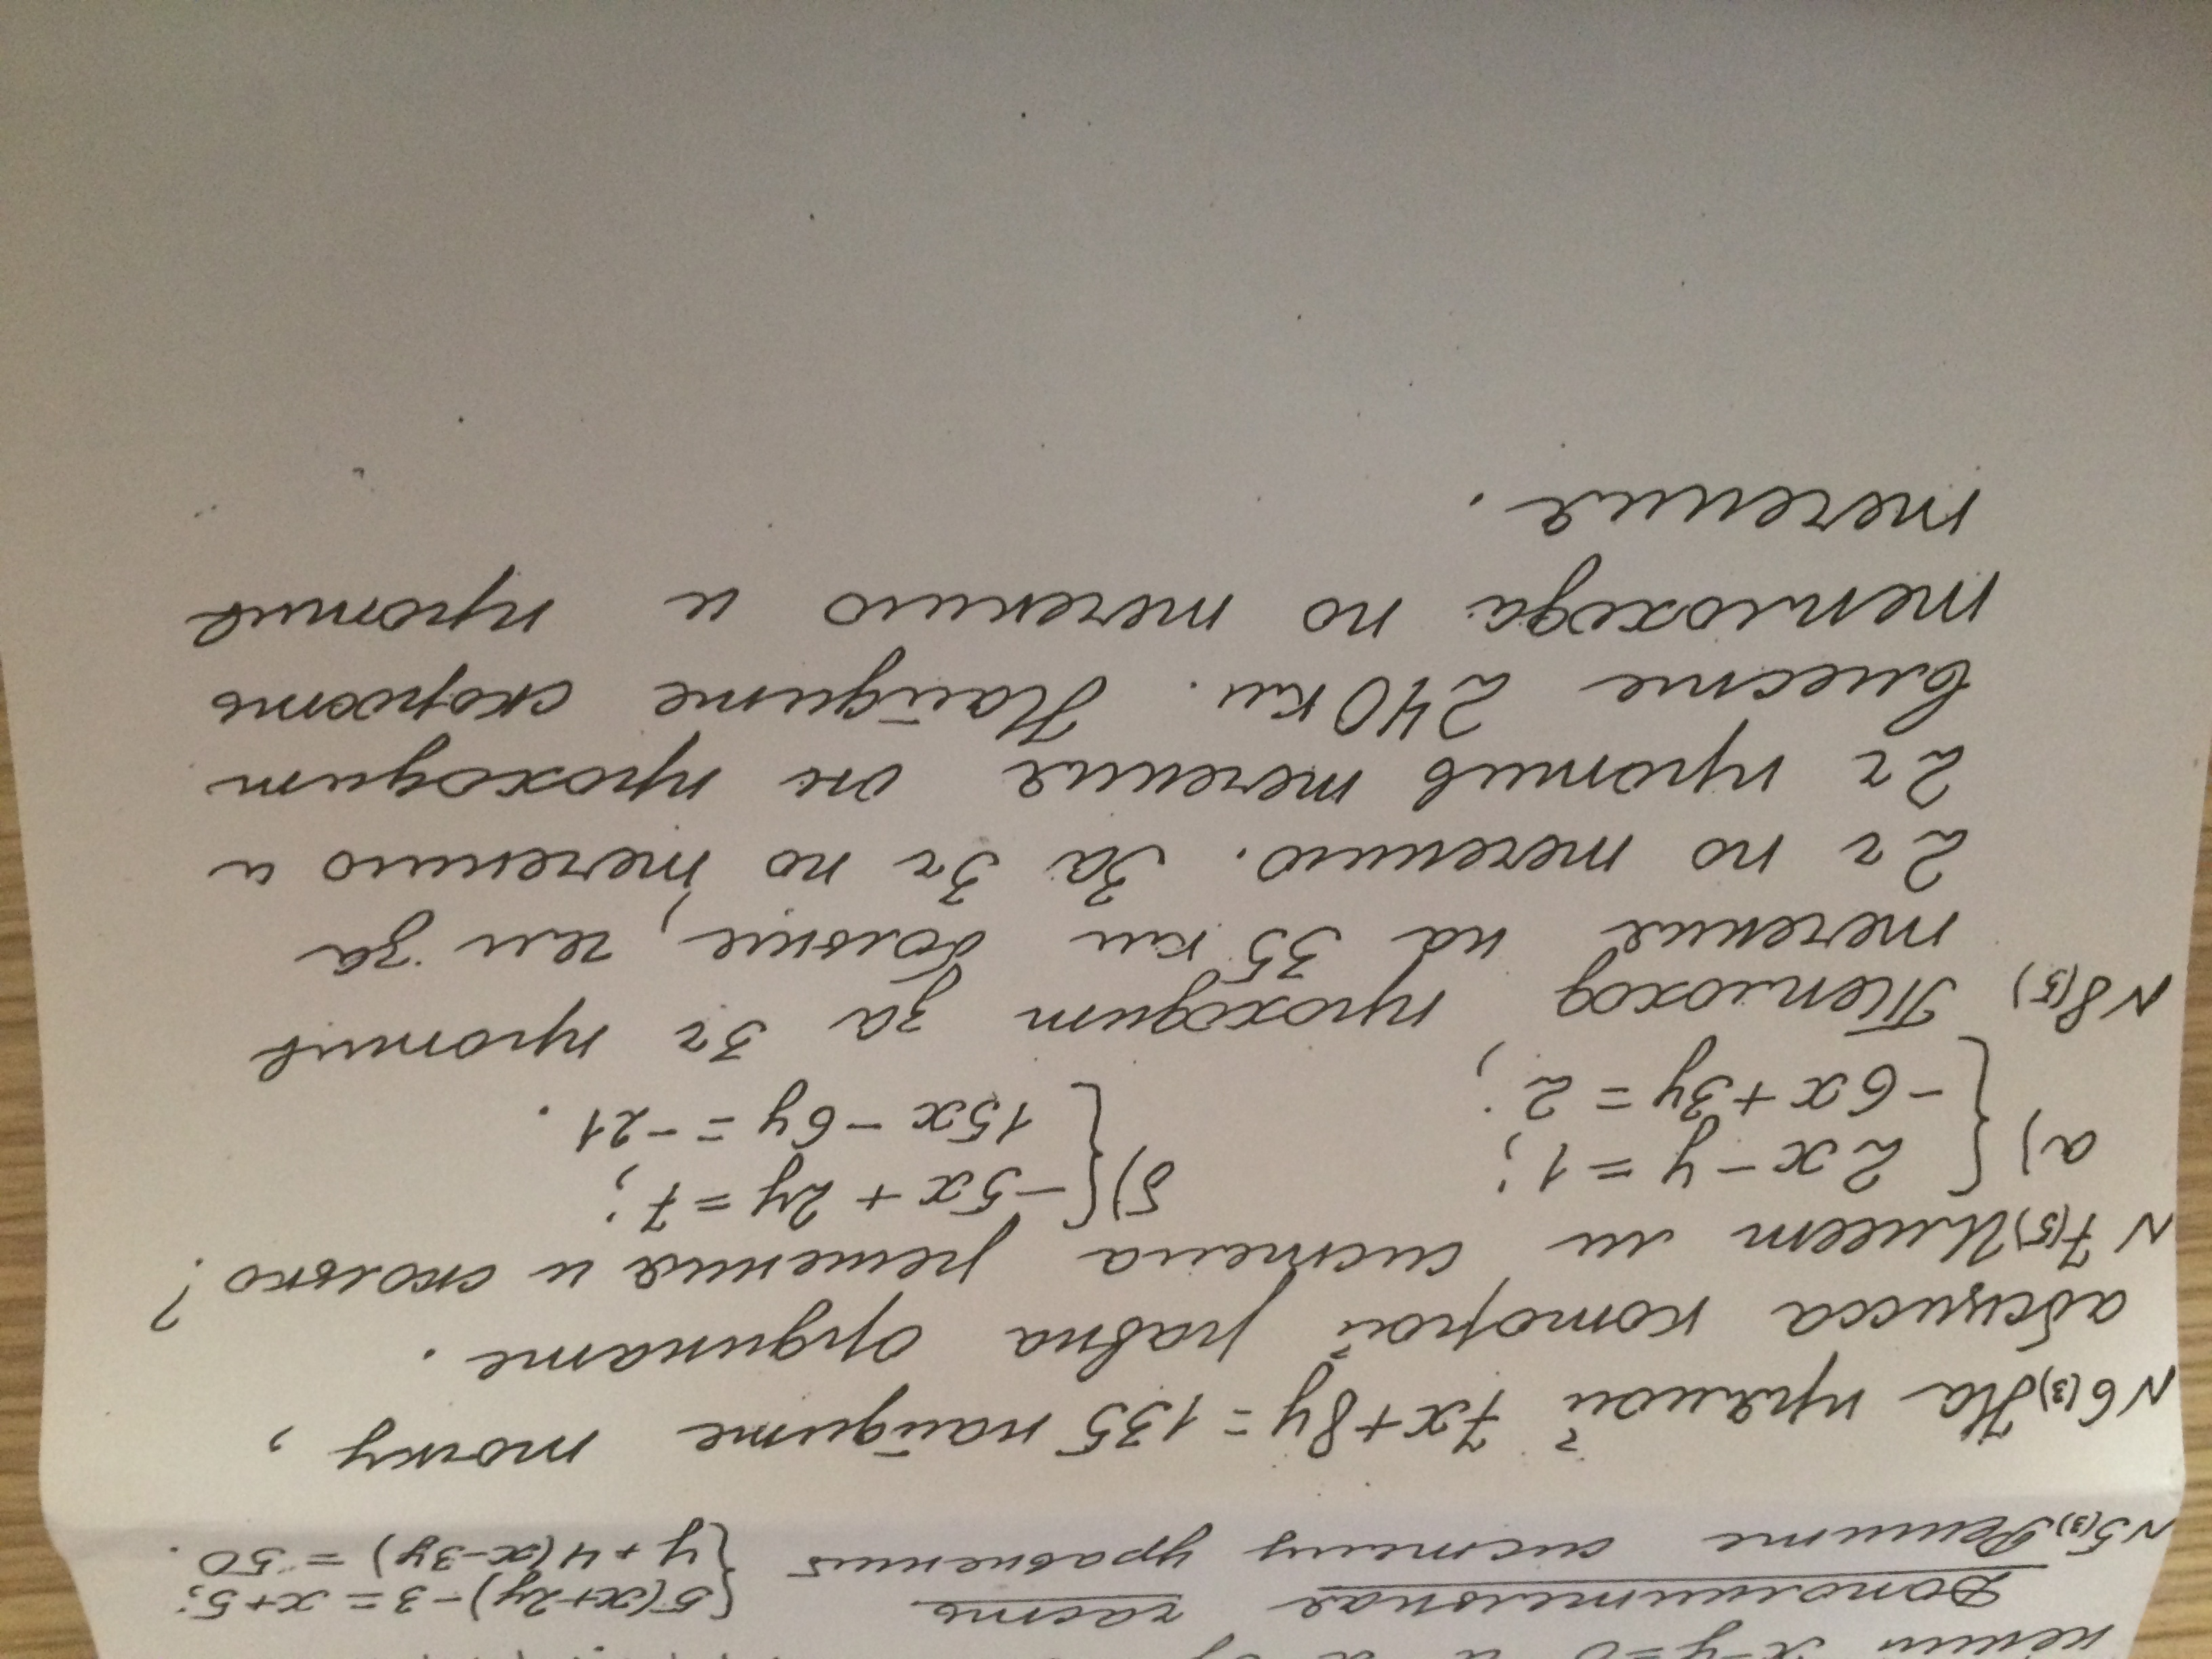 x-y=0 и
Дополнительная часть
N5(3) Решите систему уравнений { 5(x+2y)-3=x+5;
y+4(x-3y)=50.
N6(3) На прямой 7x+8y=135 найдите точку,
абсцисса которой равна ординате.
N7(5) Имеет ли система решения и сколько?
а) { 2x-y=1; б) { -5x+2y=7;
-6x+3y=2; 15x-6y=-21.
N8(5) Теплоход проходит за 3ч против
течения на 35км больше, чем за
2ч по течению. За 3ч по течению и
2ч против течения он проходит
вместе 240км. Найдите скорость
теплохода по течению и против
течения.